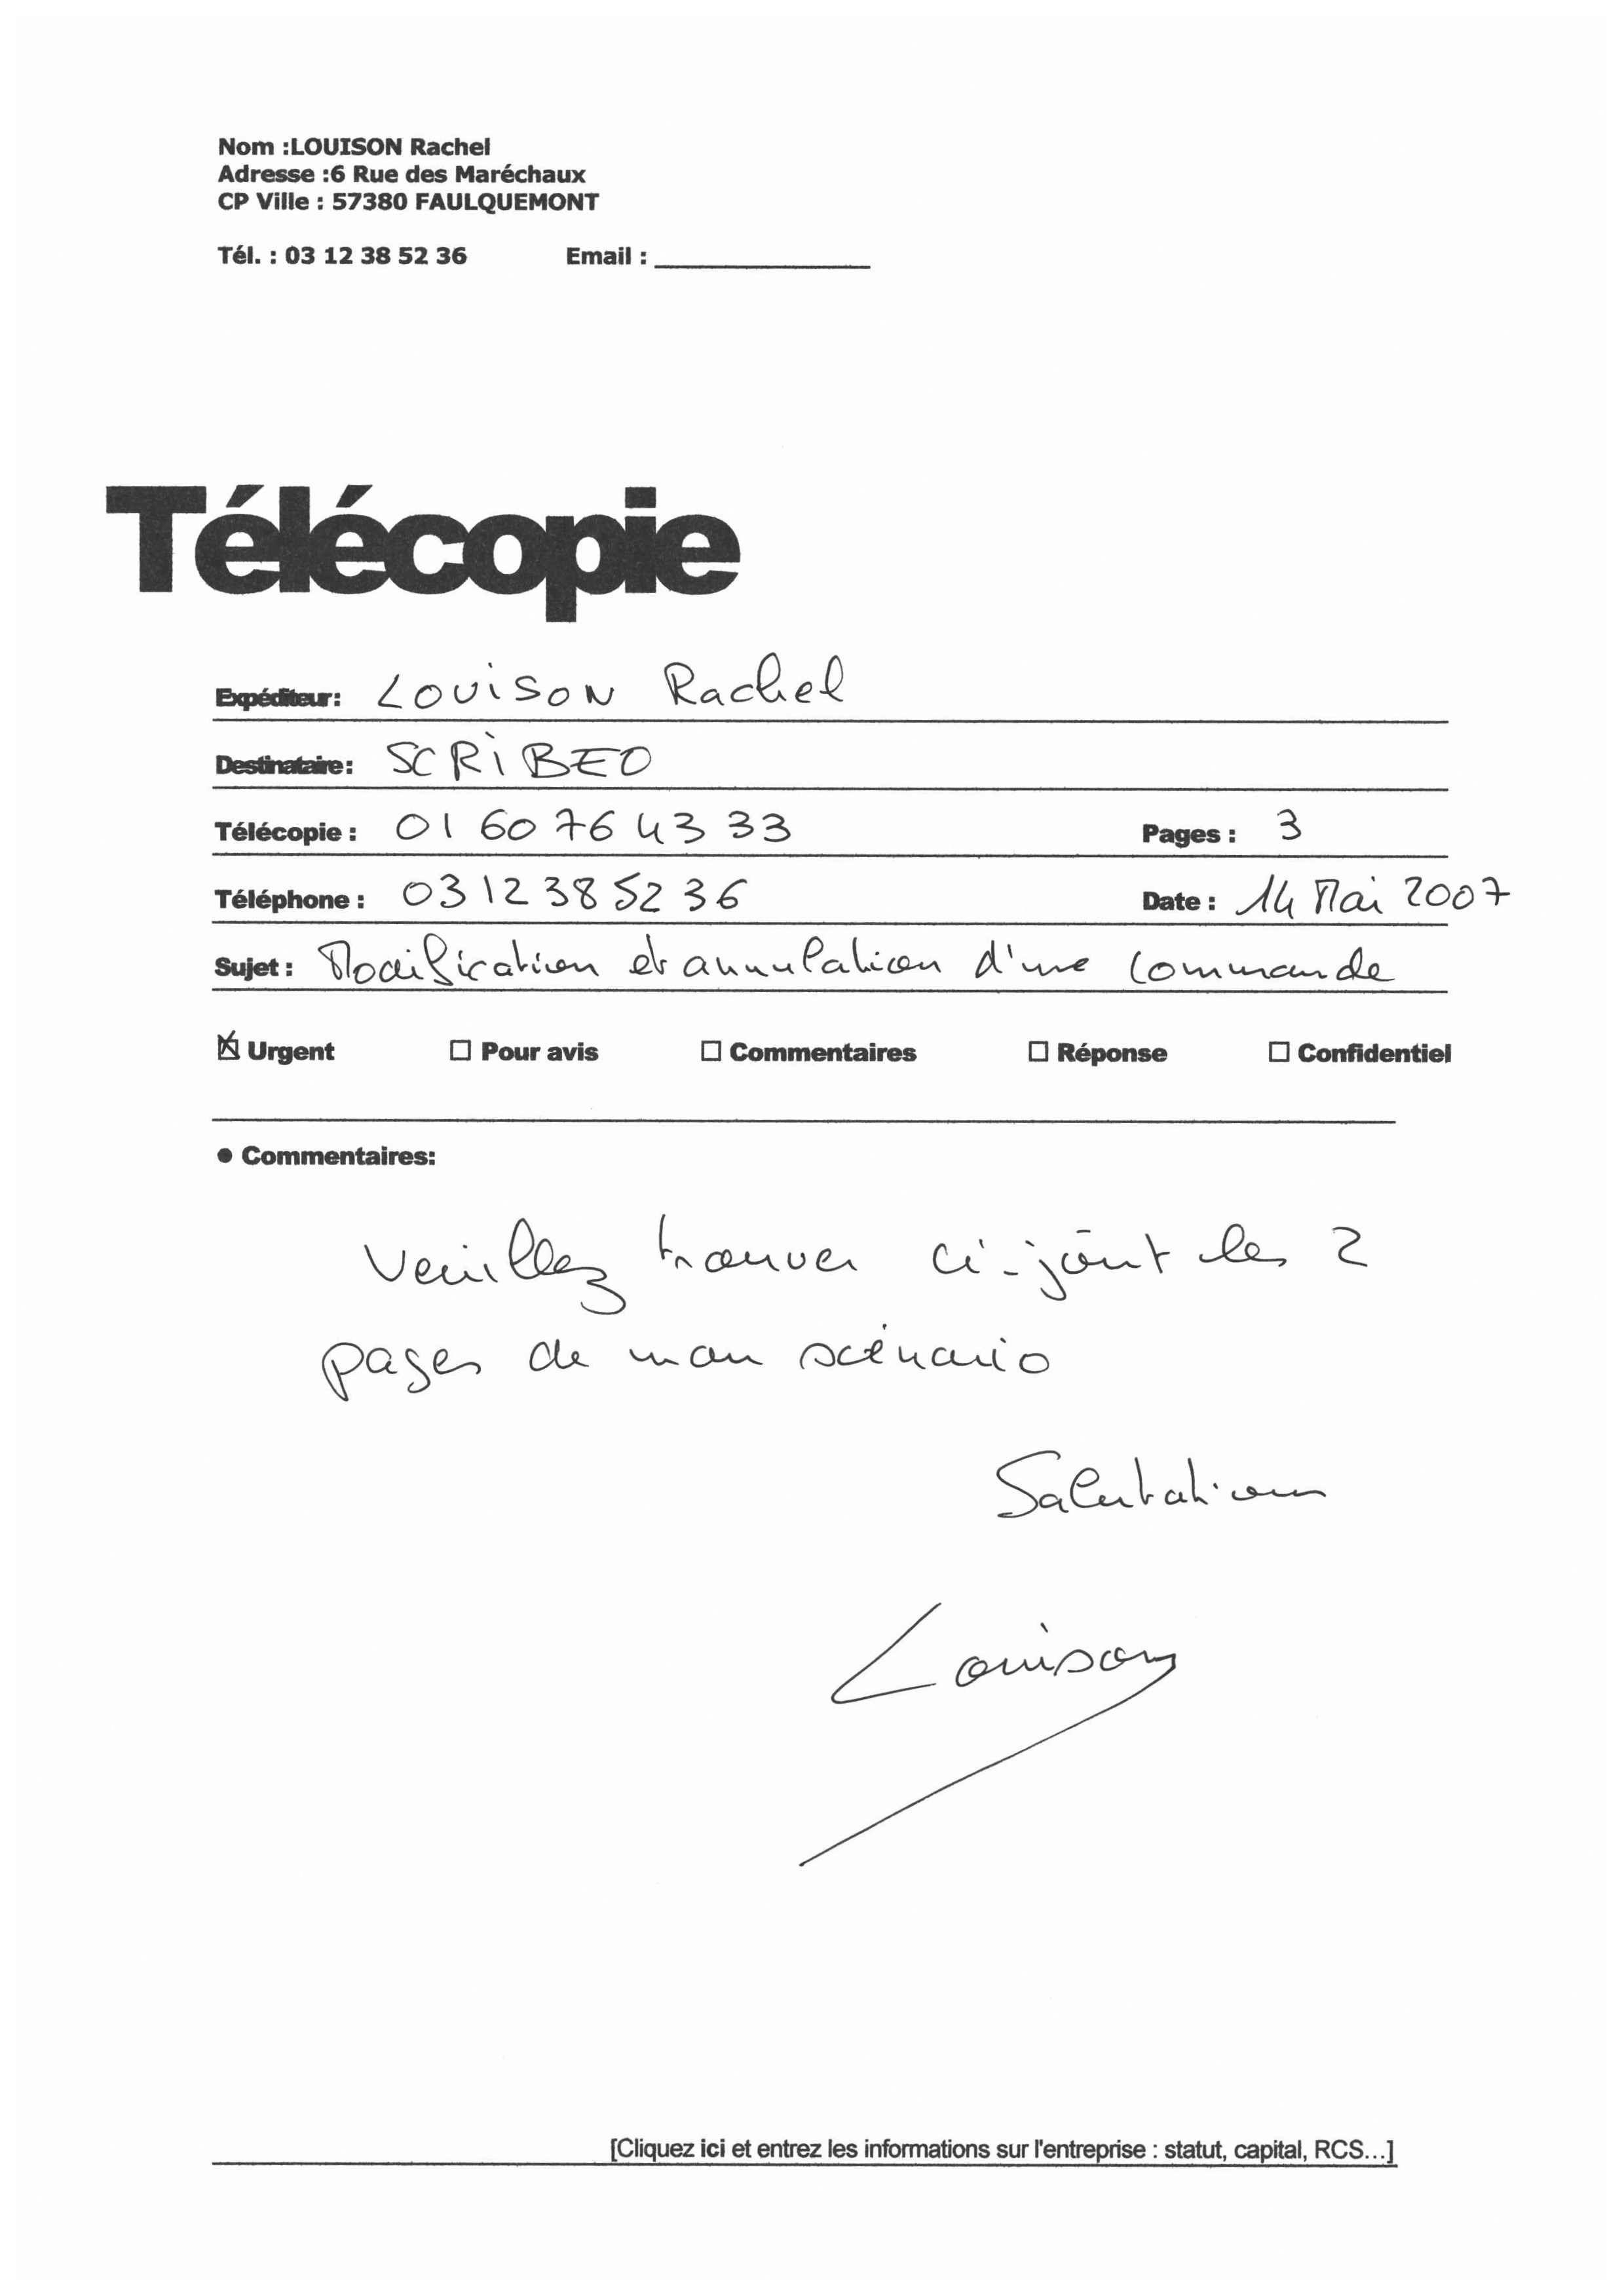 Nom :LOUISON Rachel
Adresse :6 Rue des Maréchaux
CP Ville : 57380 FAULQUEMONT
Tél. : 03 12 38 52 36 Email :
Télécopie
Expéditeur: LOUISON Rachel
Destinataire: SCRIBEO
Télécopie : 01 60 76 43 33 Pages : 3
Téléphone : 03 12 38 52 36 Date : 14 Mai 2007
Sujet : Modification et annulation d'une commande
☒ Urgent ☐ Pour avis ☐ Commentaires ☐ Réponse ☐ Confidentiel
● Commentaires:
Veuillez trouver ci-joint les 2
pages de mon scénario
Salutations
Louison
[Cliquez ici et entrez les informations sur l'entreprise : statut, capital, RCS...]